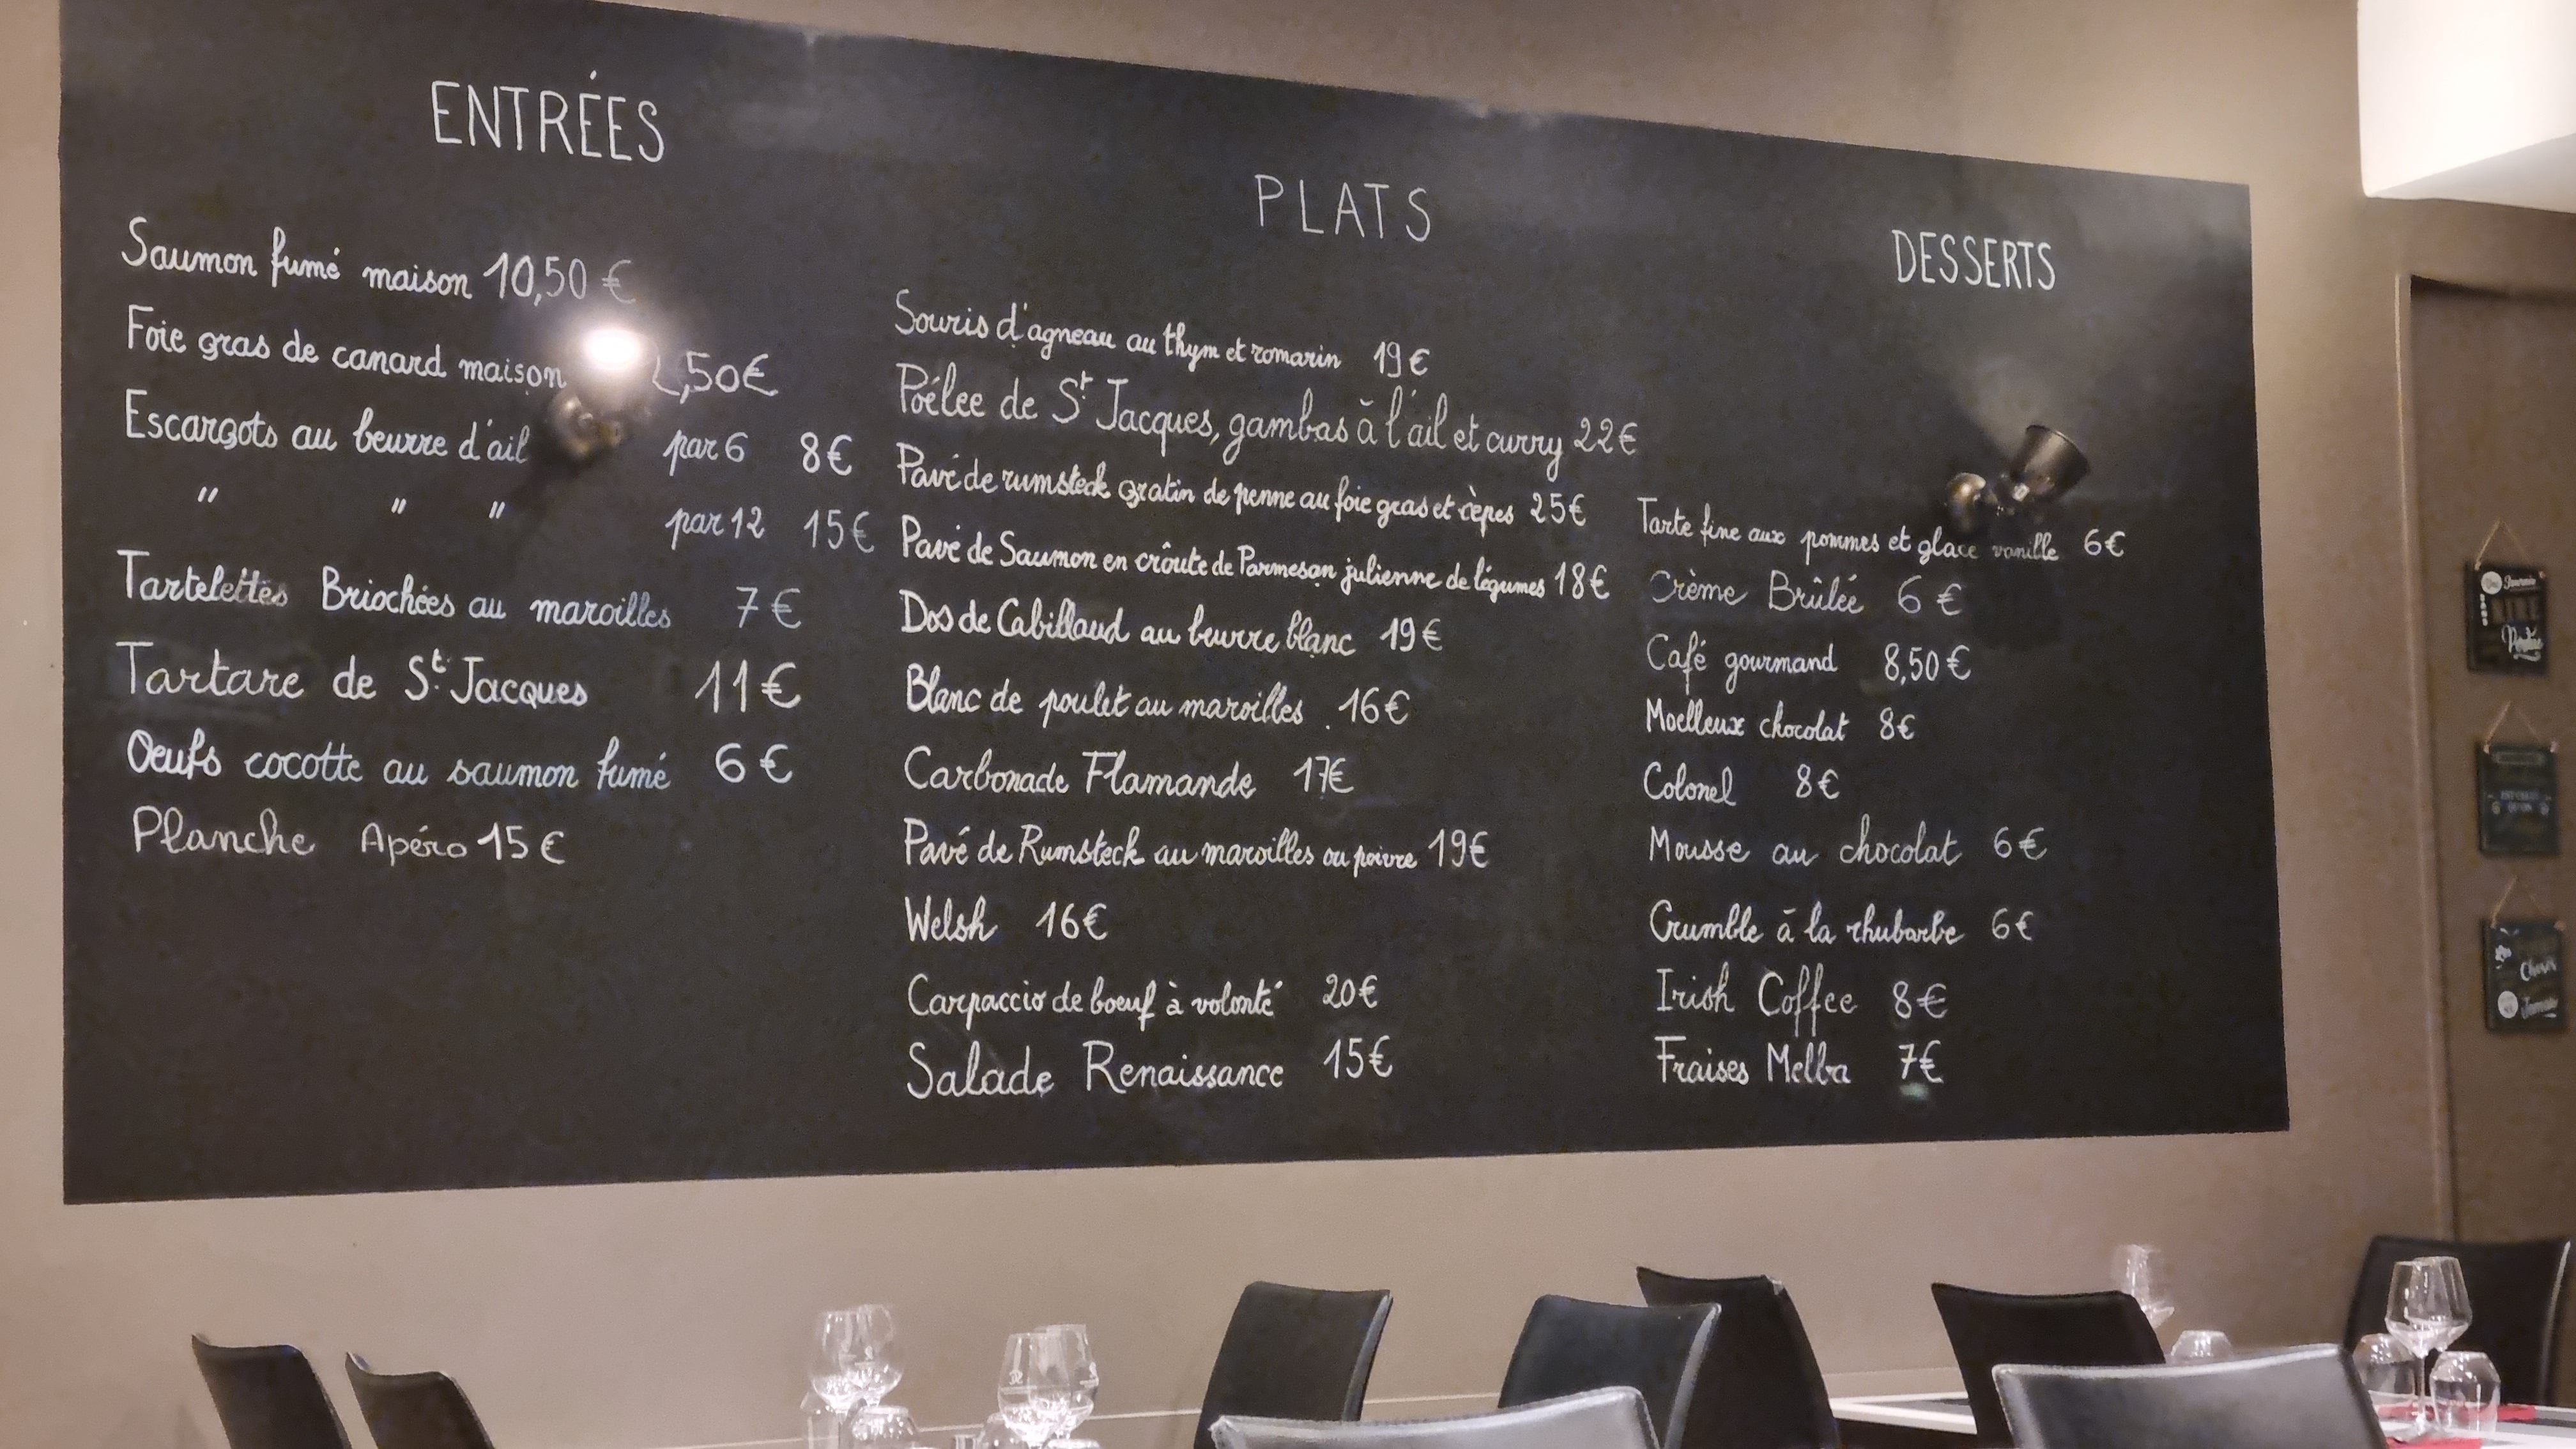 ENTRÉES
Saumon fumé maison 10,50 €
Foie gras de canard maison 2,50€
Escargots au beurre d'ail par 6 8€
" " " par 12 15€
Tartelettes Briochées au maroilles 7€
Tartare de St. Jacques 11€
Oeufs cocotte au saumon fumé 6€
Planche Apéro 15€
PLATS
Souris d'agneau au thym et romarin 19€
Poélee de St Jacques, gambas à l'ail et curry 22€
Pavé de rumsteck gratin de penne au foie gras et cèpes 25€
Pavé de Saumon en croûte de Parmesan julienne de légumes 18€
Dos de Cabillaud au beurre blanc 19€
Blanc de poulet au maroilles . 16€
Carbonade Flamande 17€
Pavé de Rumsteck au maroilles ou poivre 19€
Welsh 16€
Carpaccio de boeuf à volonté 20€
Salade Renaissance 15€
DESSERTS
Tarte fine aux pommes et glace vanille 6€
Crème Brûléé 6€
Café gourmand 8,50€
Moelleux chocolat 8€
Colonel 8€
Mousse au chocolat 6€
Crumble à la rhubarbe 6€
Irish Coffee 8€
Fraises Melba 7€